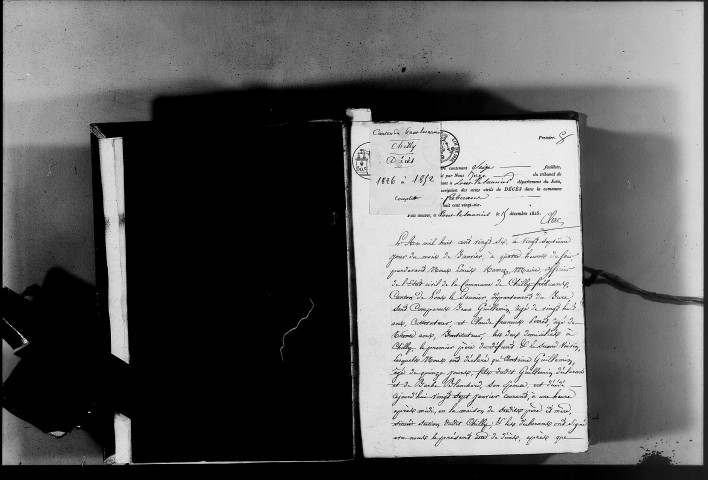 Canton de Lons-le-saunier
Chilly
Décès
1826 à 1852
Complet
Premier
contenant Seize feuillets,
par Nous Juge du tribunal de
à Lons-le-Saunier département du Jura,
inscription des actes civils de DÉCÈS dans la commune
huit cent vingt-six.
Fait
à Lons-le-Saunier le 15 décembre 1825.
L'An mil huit cent vingt six, le vingt septième
jour du mois de Janvier, à quatre heures du soir
pardevant Nous Louis Maire, officier
de l'État civil de la Commune de Chilly
Canton de Lons le Saunier, département du Jura,
sont Comparus Jean Guillemin, âgé de vingt huit
ans, Cultivateur, et Claude François âgé de
trente ans, Instituteur, les deux domiciliés à
Chilly le premier père du défunt & le second Voisin,
lesquels Nous ont déclaré qu'Antoine Guillemin,
âgé de quinze jours, fils dudit Guillemin déclarant
et de Barbe Blanchard son épouse, est décédé
aujourdhui vingt sept janvier courant, à une heure
après midi, en la maison de sesdits père et mère,
située audit Chilly, & les déclarants ont signé
avec nous le présent acte de décès, après que